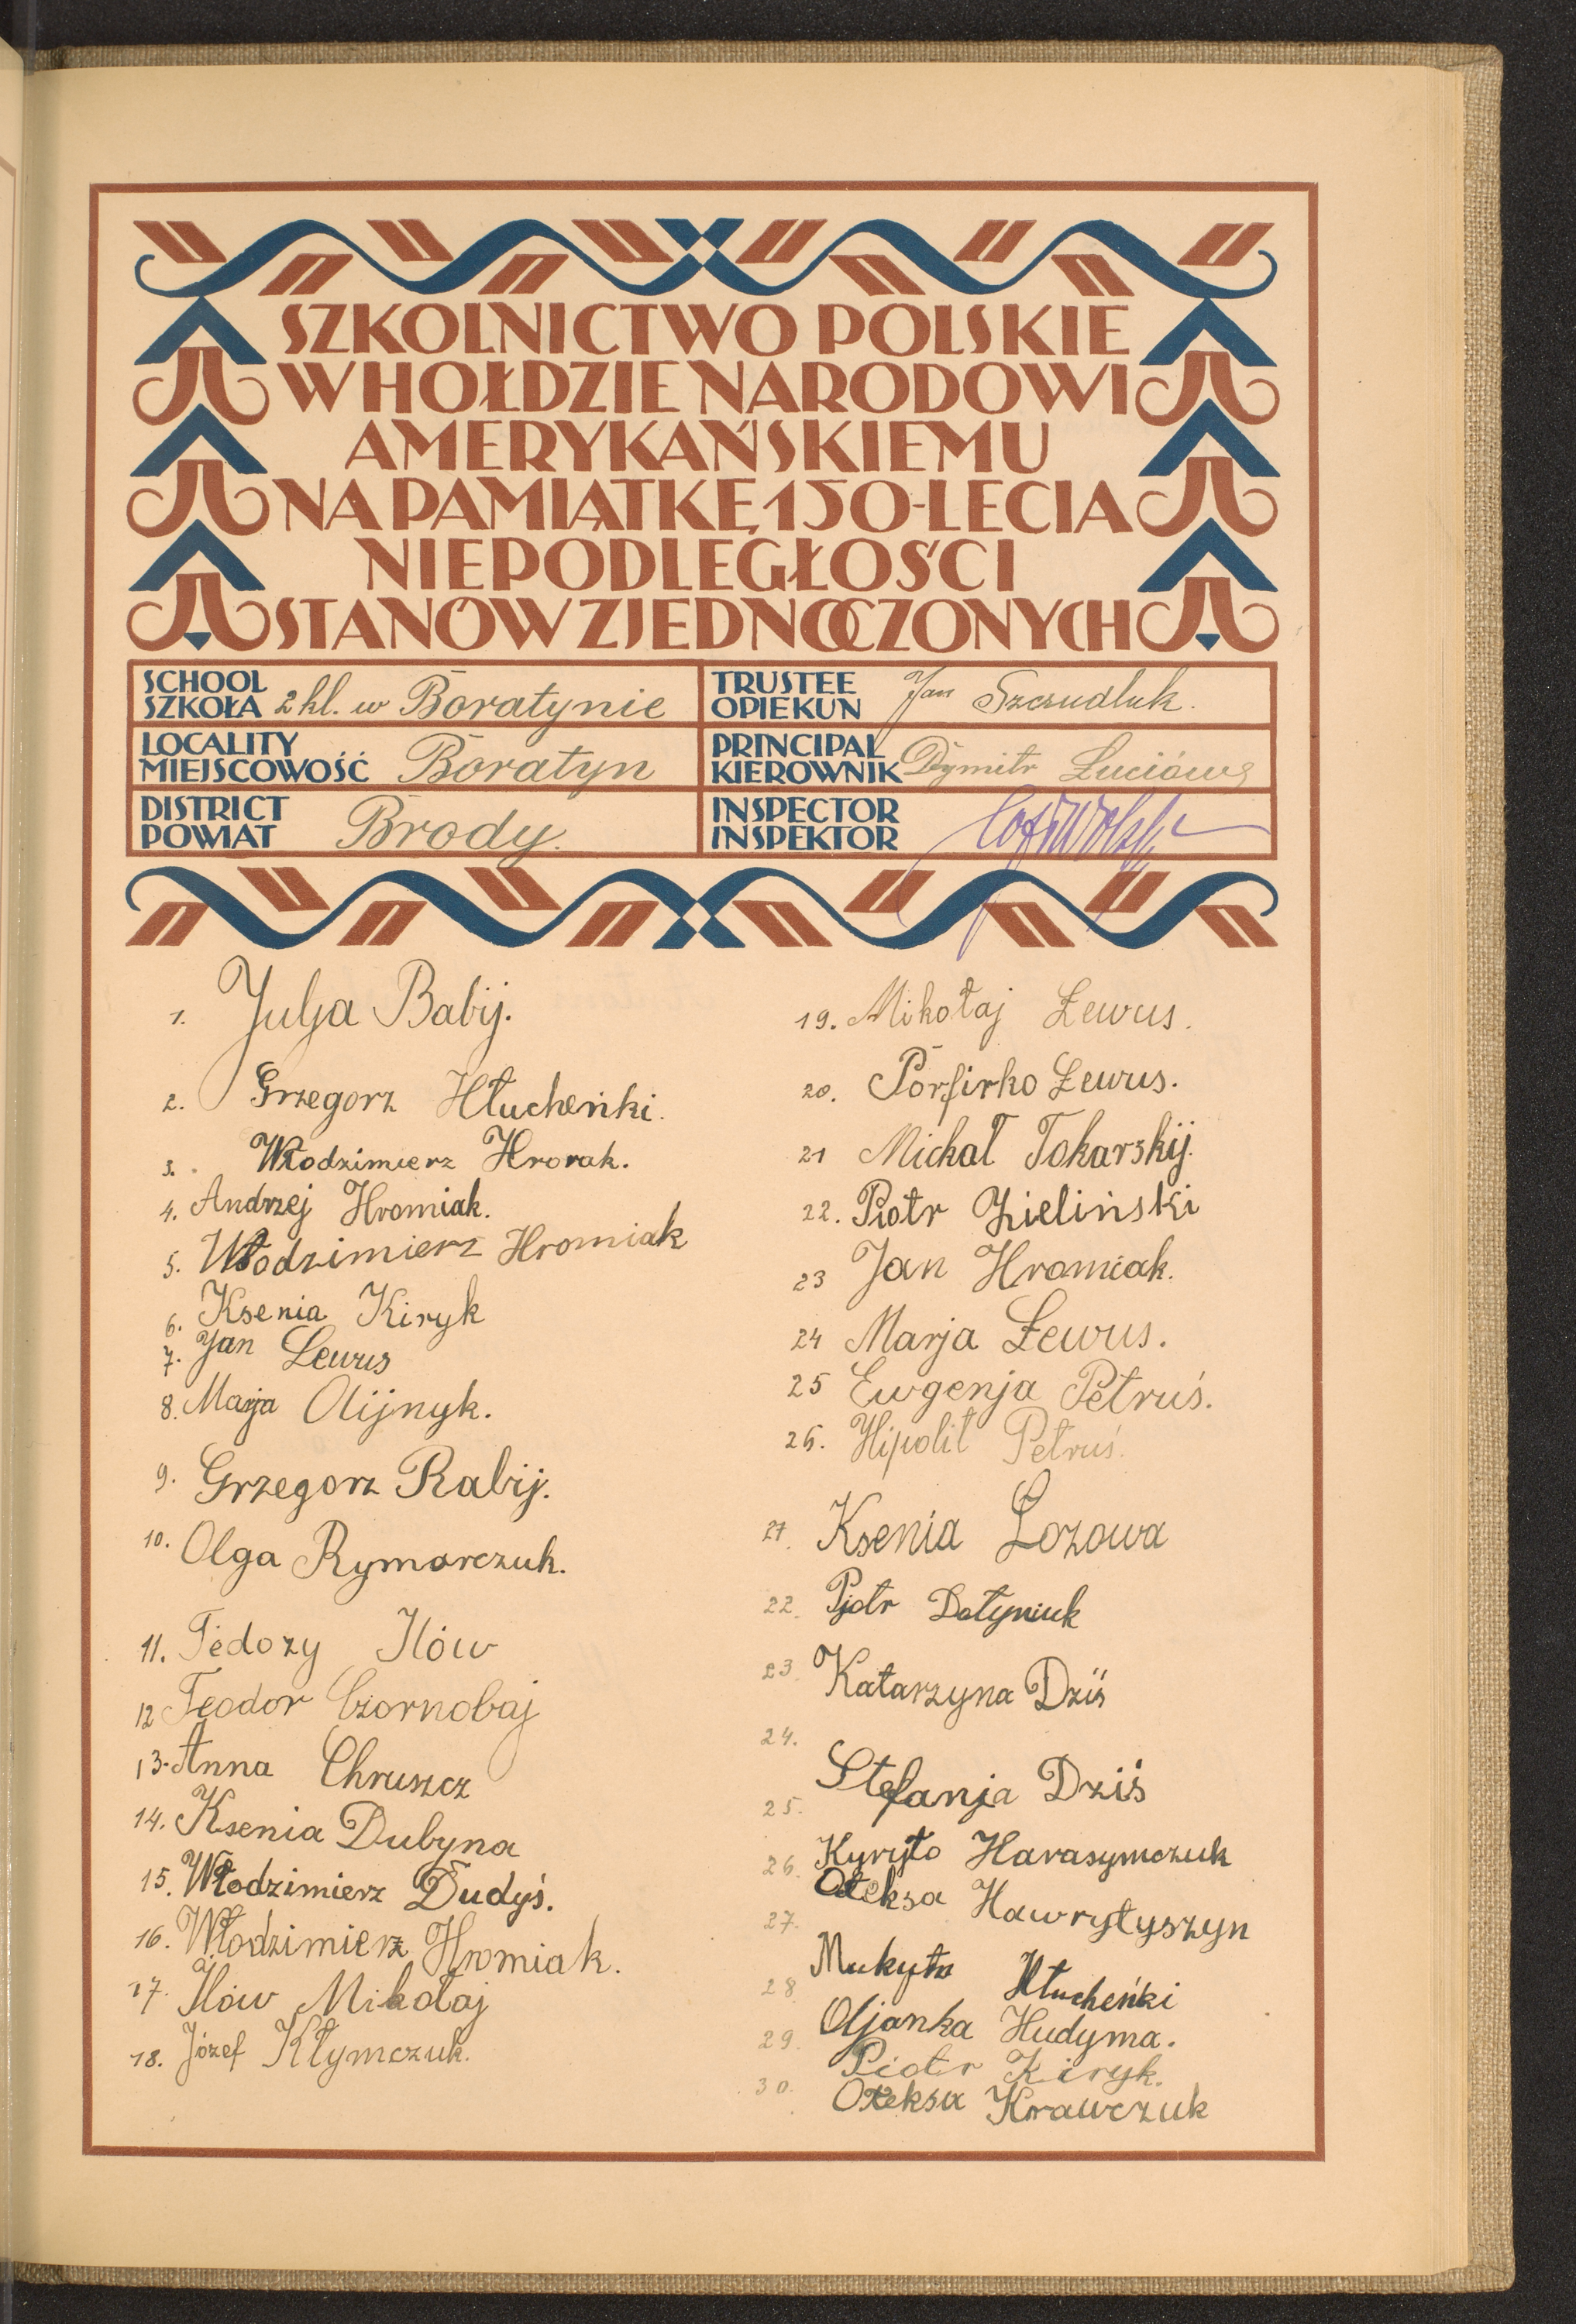 SZKOLNICTWO POLSKIE
W HOŁDZIE NARODOWI
AMERYKAŃSKIEMU
NA PAMIĄTKĘ 150-LECIA
NIEPODLEGŁOŚCI
STANÓW ZJEDNOCZONYCH
SCHOOL
SZKOŁA 2 kl. w Boratynie
TRUSTEE
OPIEKUN Jan Szczudluk.
LOCALITY
MIEJSCOWOŚĆ Boratyn
PRINCIPAL
KIEROWNIK Dymitr Łuciów
DISTRICT
POWIAT Brody.
INSPECTOR
INSPEKTOR
1. Julja Babij.
2. Grzegorz Hłucheńki.
3. Włodzimierz Hrorak.
4. Andrzej Hromiak.
5. Włodzimierz Hromiak
6. Ksenia Kiryk
7. Jan Lewus
8. Marja Olijnyk.
9. Grzegorz Rabij.
10. Olga Rymarczuk.
11. Tedozy Ilów
12 Teodor Czornobaj
13. Anna Chruszcz
14. Ksenia Dubyna
15. Włodzimierz Dudyś.
16. Włodzimierz Hromiak.
17. Ilów Mikołaj
18. Józef Kłymczuk.
19. Mikołaj Lewus.
20. Porfirko Lewus.
21 Michał Tokarskij.
22. Piotr Zieliński
23 Jan Hromiak.
24 Marja Lewus.
25 Ewgenja Petruś.
26. Hipolit Petruś.
27. Ksenia Łozowa
22. Piotr Datyniuk
23. Katarzyna Dziś
24.
Stefanja Dziś
25.
Kyryło Harasymczuk
26.
Ołeksa Hawryłyszyn
27.
Mukyta Hłucheńki
28
Oljanka Hudyma.
29.
Piotr Kiryk.
30.
Ołeksa Krawczuk